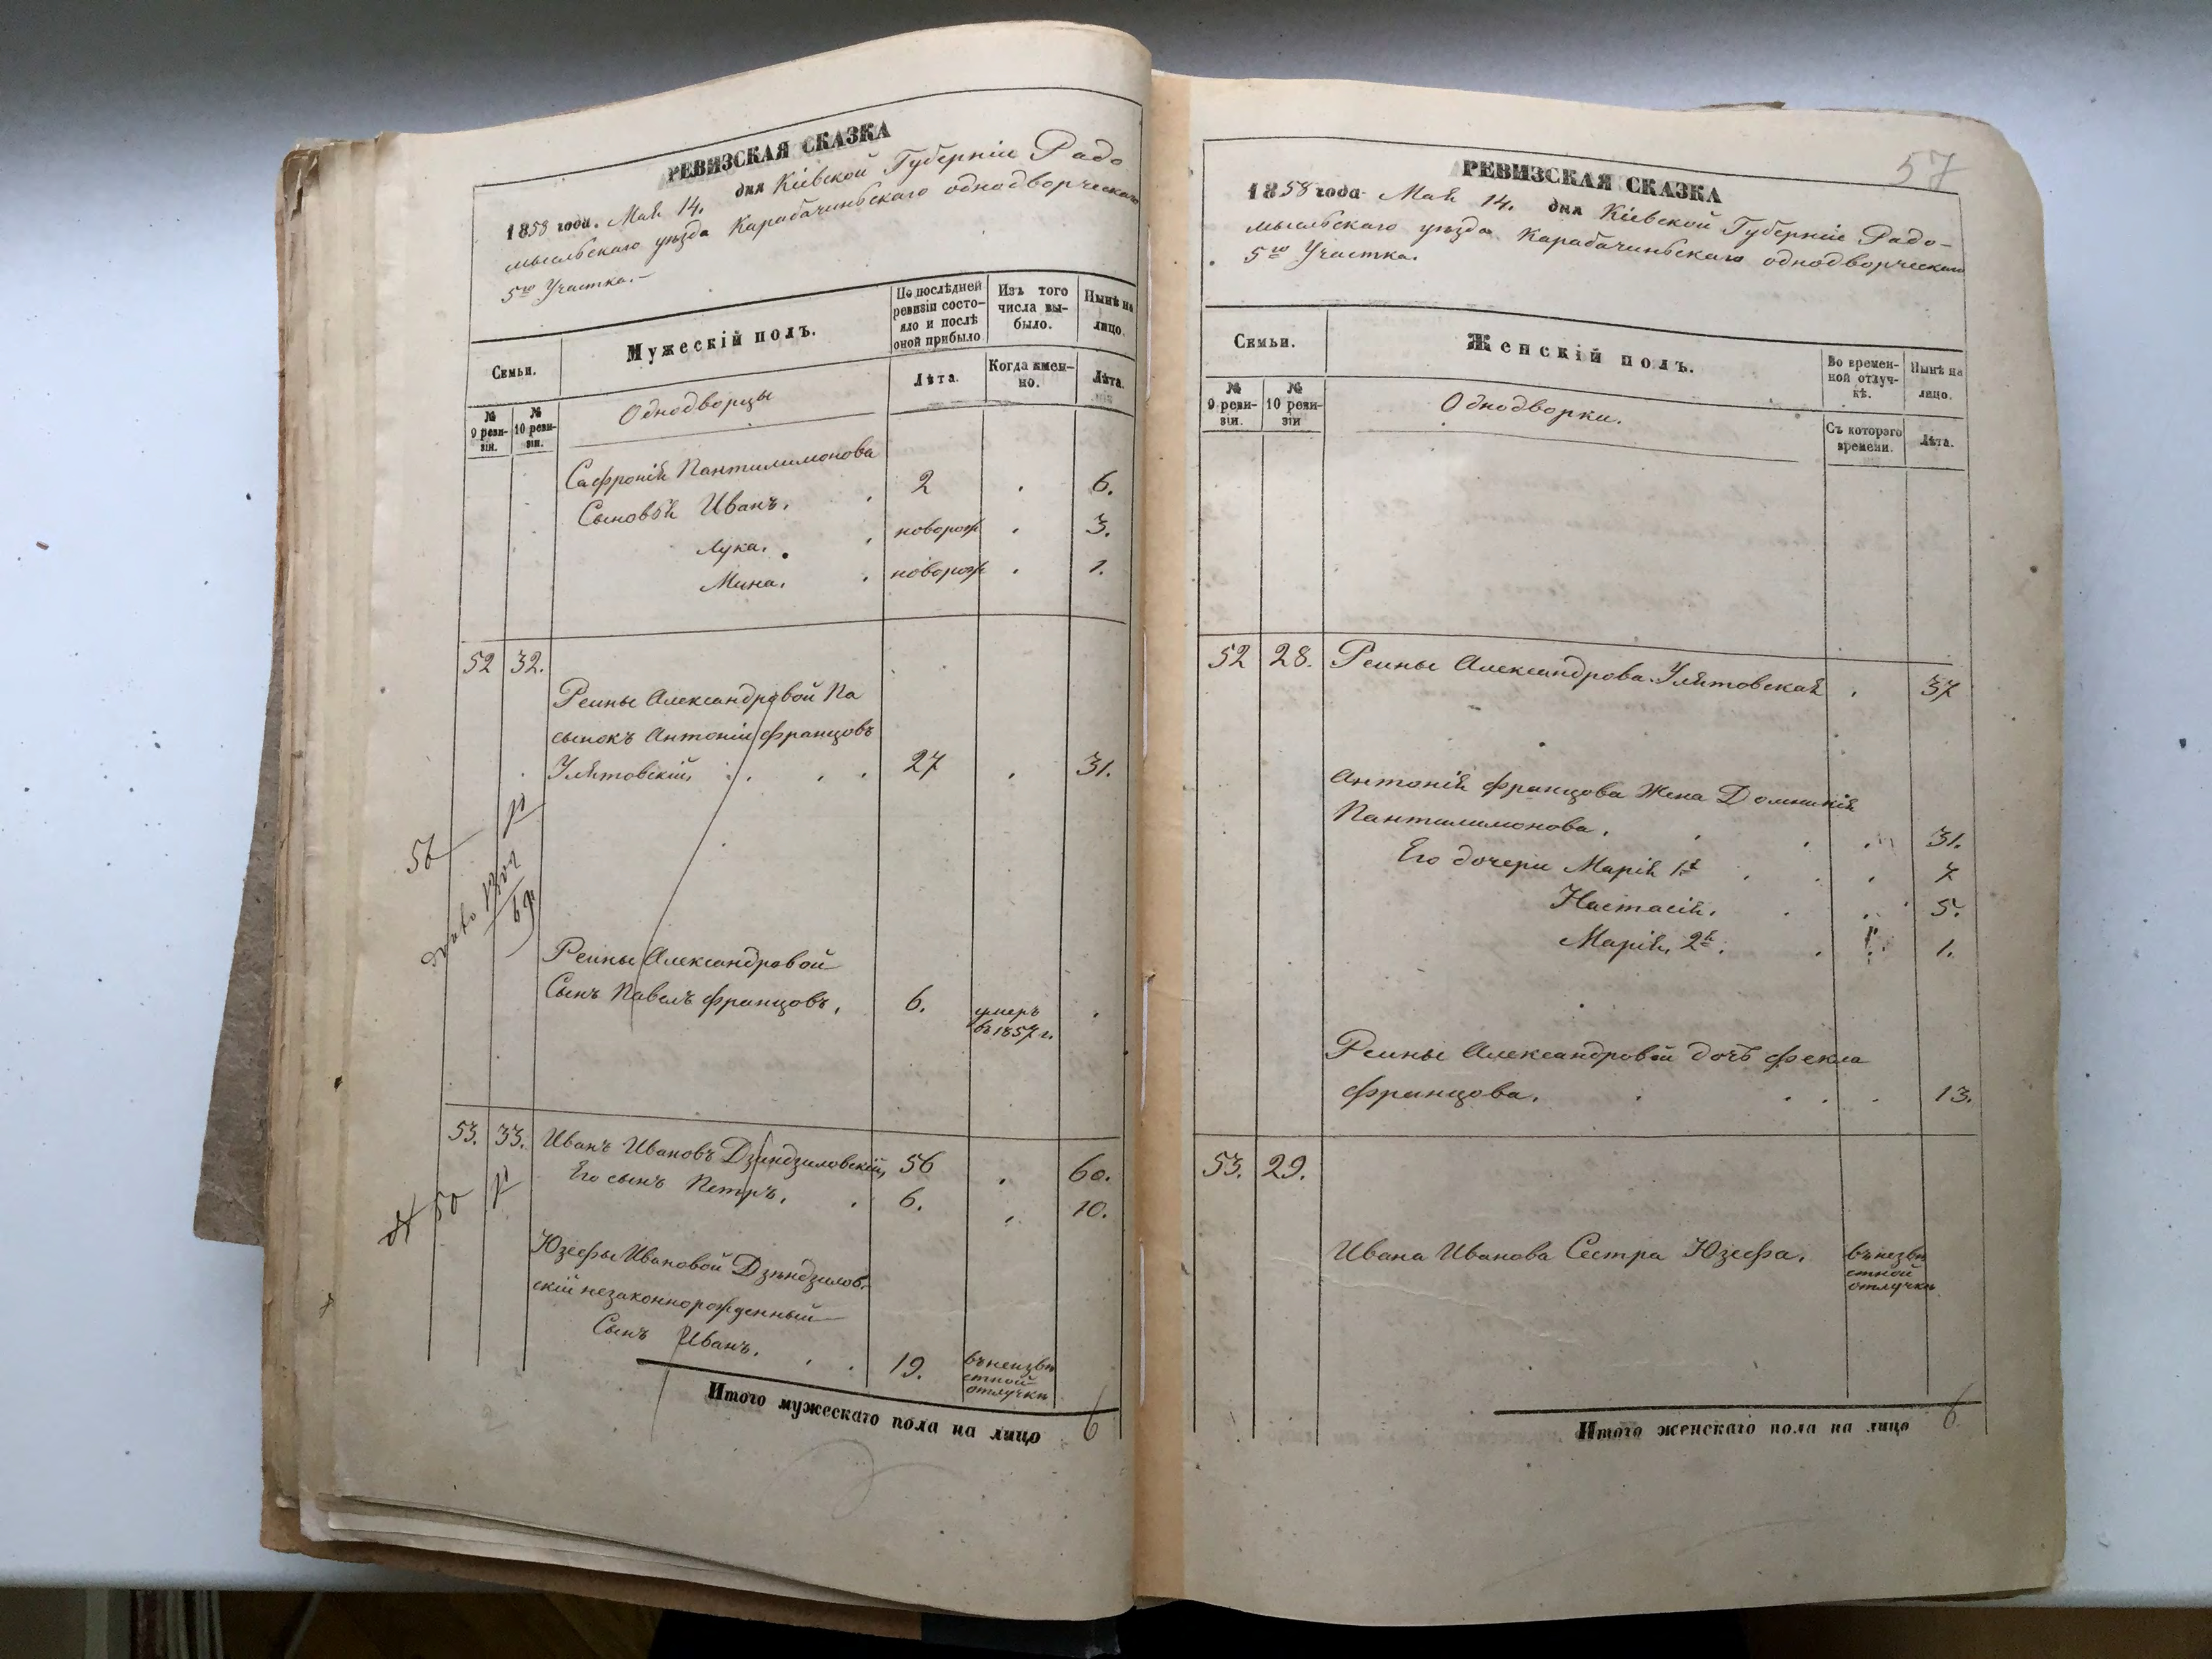 РЕВИЗСКАЯ СКАЗКА
1858 года. Мая 14. дня Кіевской Губерніи Радо
мысльскаго уѣзда Карабачинскаго однодворческаго
5го Участка.
Семьи.
Мужескій полъ.
По послѣдней ревизіи состояло и послѣ оной прибыло.
Изъ того числа выбыло.
Нынѣ на лицо.
№ 9 ревизіи.
№ 10 ревизіи.
Однодворцы
Лѣта.
Когда именно.
Лѣта.
Сафронія Пантилимонова
Сыновья Иванъ. 2 6.
Лука. новорож 3.
Мина. новорож 1.
52 32.
Реины Александровой Па
сынокъ Антоній Францовъ
Улятовскій 27 31.
56
Реины Александровой
Сынъ Павелъ Францовъ, 6. умеръ
въ 1857 г.
53. 33. Иванъ Ивановъ Дзиндзиловскій, 56 60.
Его сынъ Петръ. 6. 10.
50
Юзефы Ивановой Дзиндзилов-
скій незаконнорожденный
Сынъ Иванъ. 19. въ неизвѣ
стной
отлучкѣ
Итого мужескаго пола на лицо 6
57
РЕВИЗСКАЯ СКАЗКА
1858 года Мая 14. дня Кіевской Губерніи Радо-
мысльскаго уѣзда Карабачинскаго однодворческаго
5го Участка.
Семьи.
Женскій полъ.
Во временной отлучкѣ.
Нынѣ на лицо.
№ 9 ревизіи.
№ 10 ревизіи
Однодворки.
Съ котораго времени.
Лѣта.
52 28. Реины Александрова Улятовская 37
Антонія Францова Жена Доминикія
Пантилимонова. 31.
Его дочери Марія 1я 7
Настасія. 5.
Марія, 2я. 1.
Реины Александровой дочь Фекла
Францова. 13.
53. 29.
Ивана Иванова Сестра Юзефа. въ неизвѣ
стной
отлучкѣ
Итого женскаго пола на лицо 6